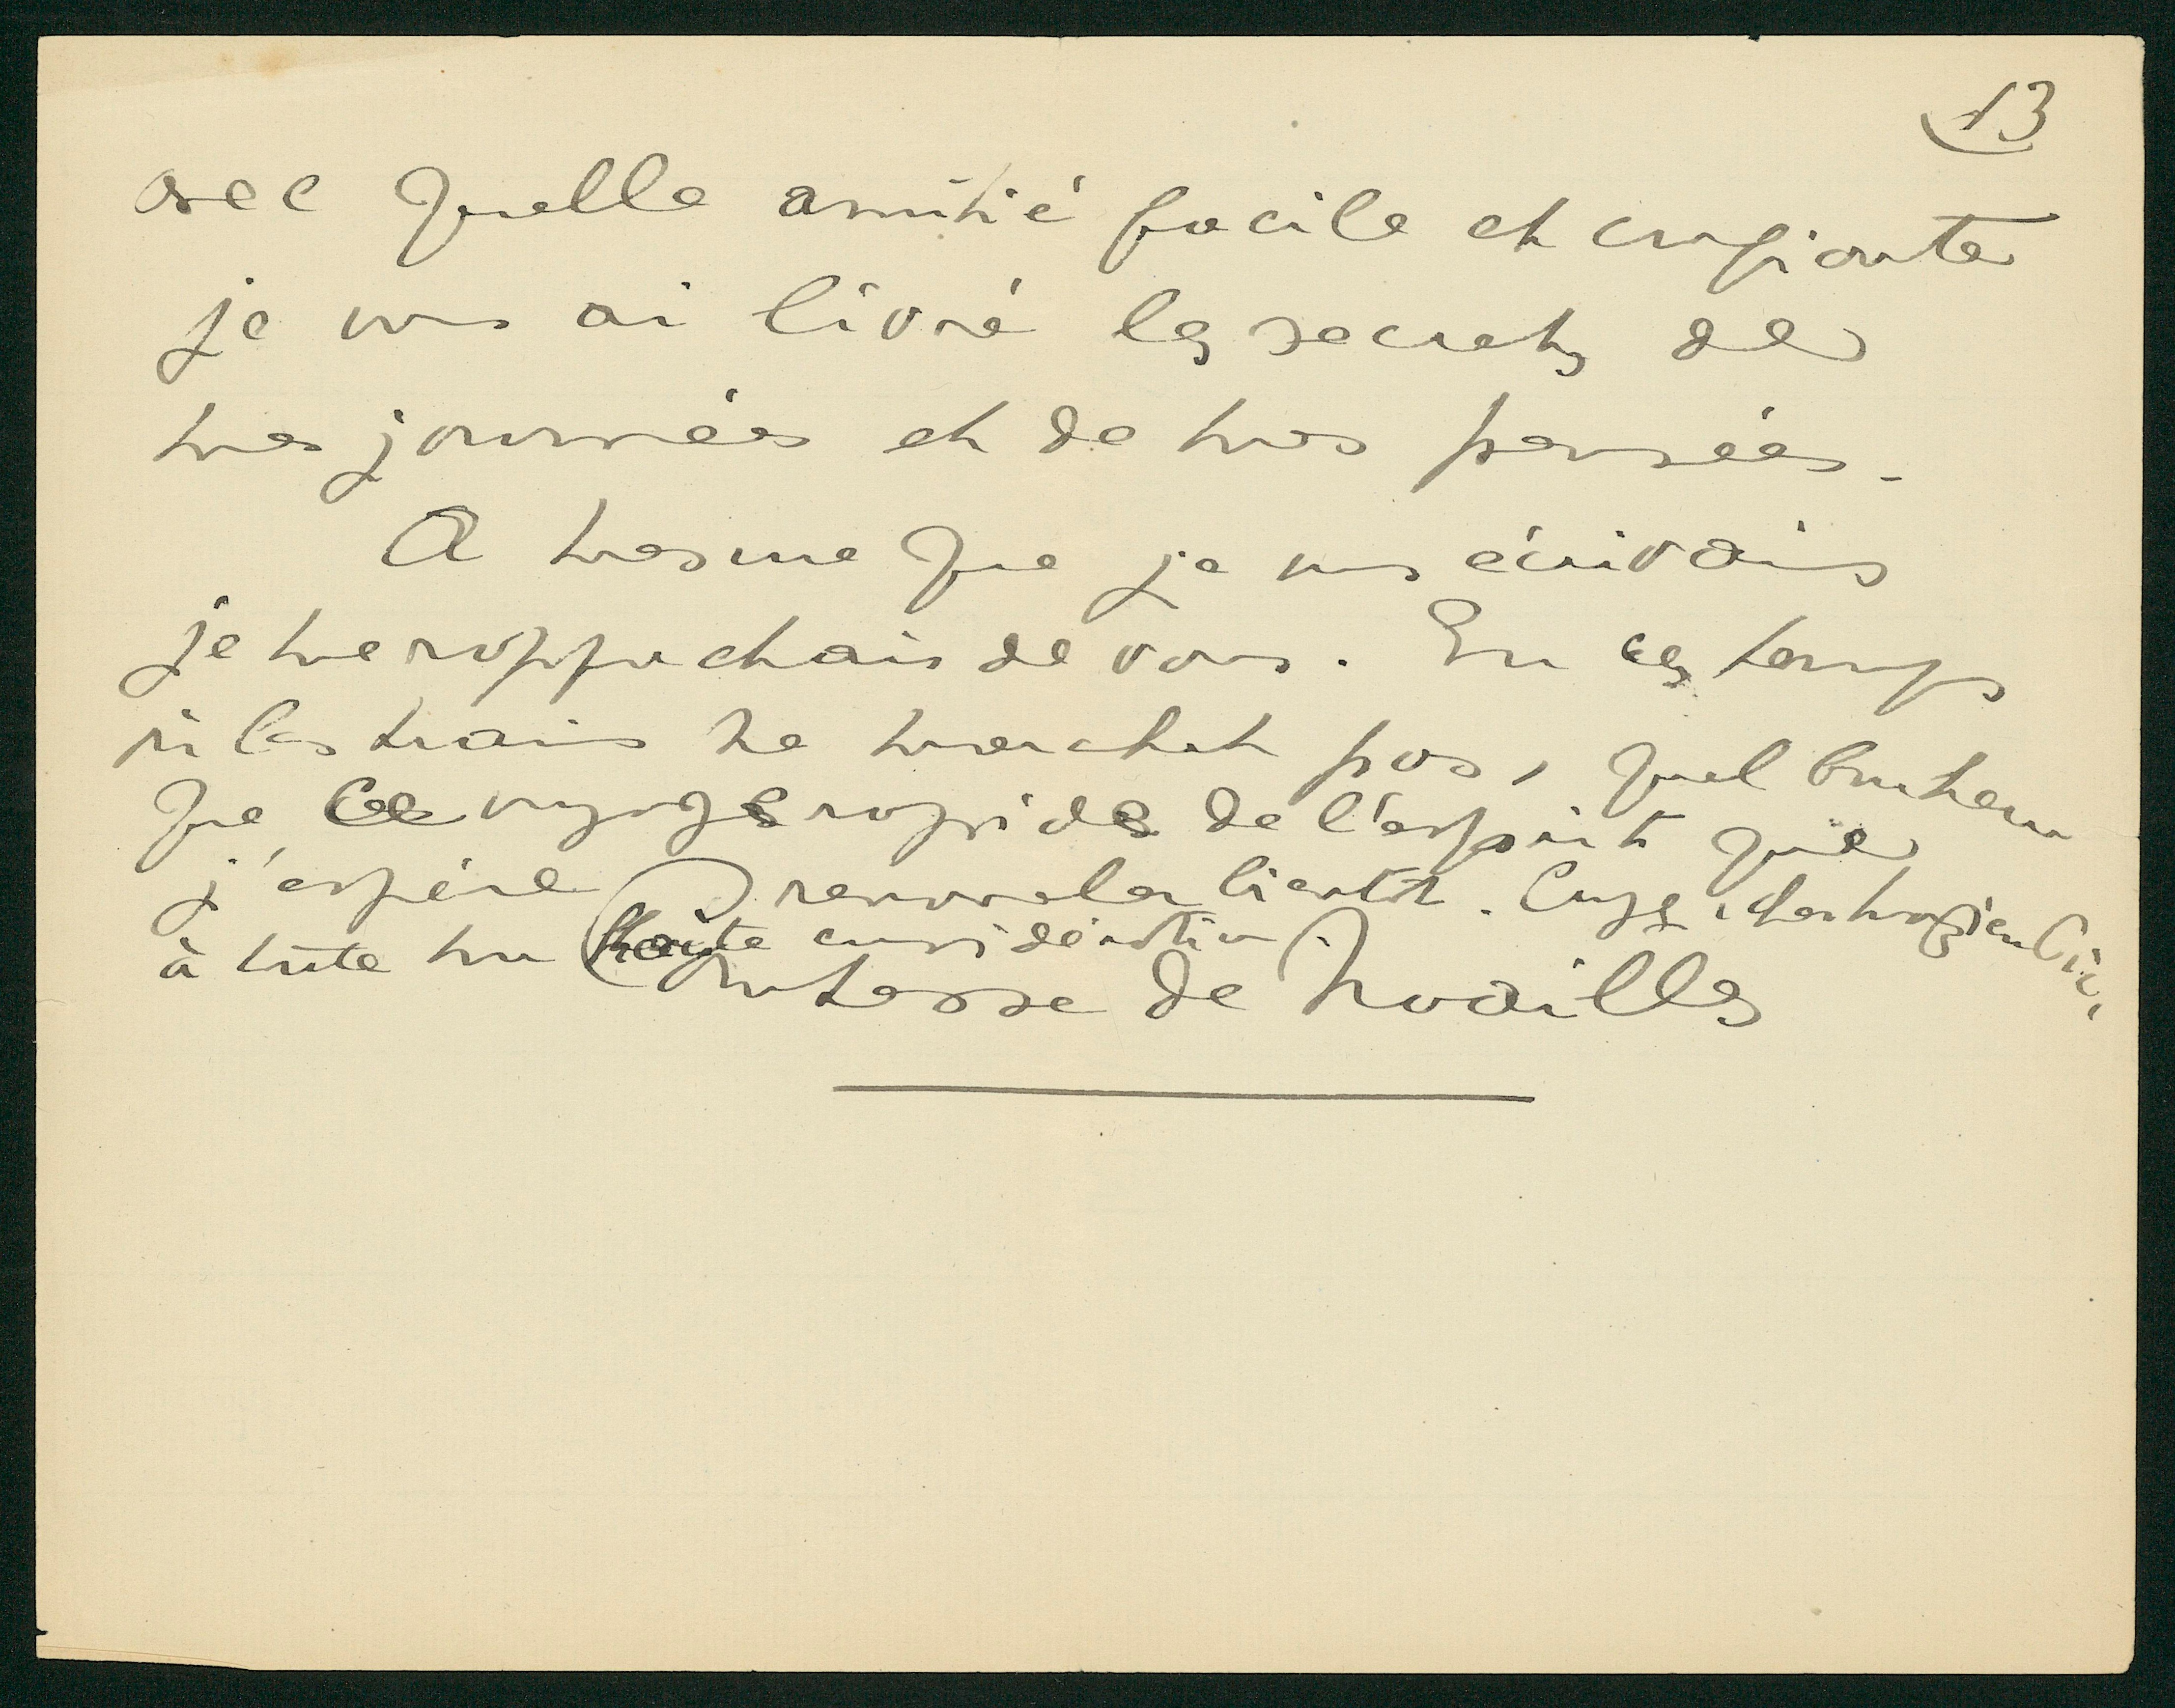 13
avec quelle amitié facile et confiante
je vous ai livré les secrets de
mes journées et de mes pensées.
A mesure que je vous écrivais
je me rapprochais de vous. En ces temps
où les trains ne marchent pas, quel bonheur
que ce voyage rapide de l'esprit que
j'espère renouveler bientôt. Croyez, cher
à toute ma haute considération.
Comtesse de Noailles